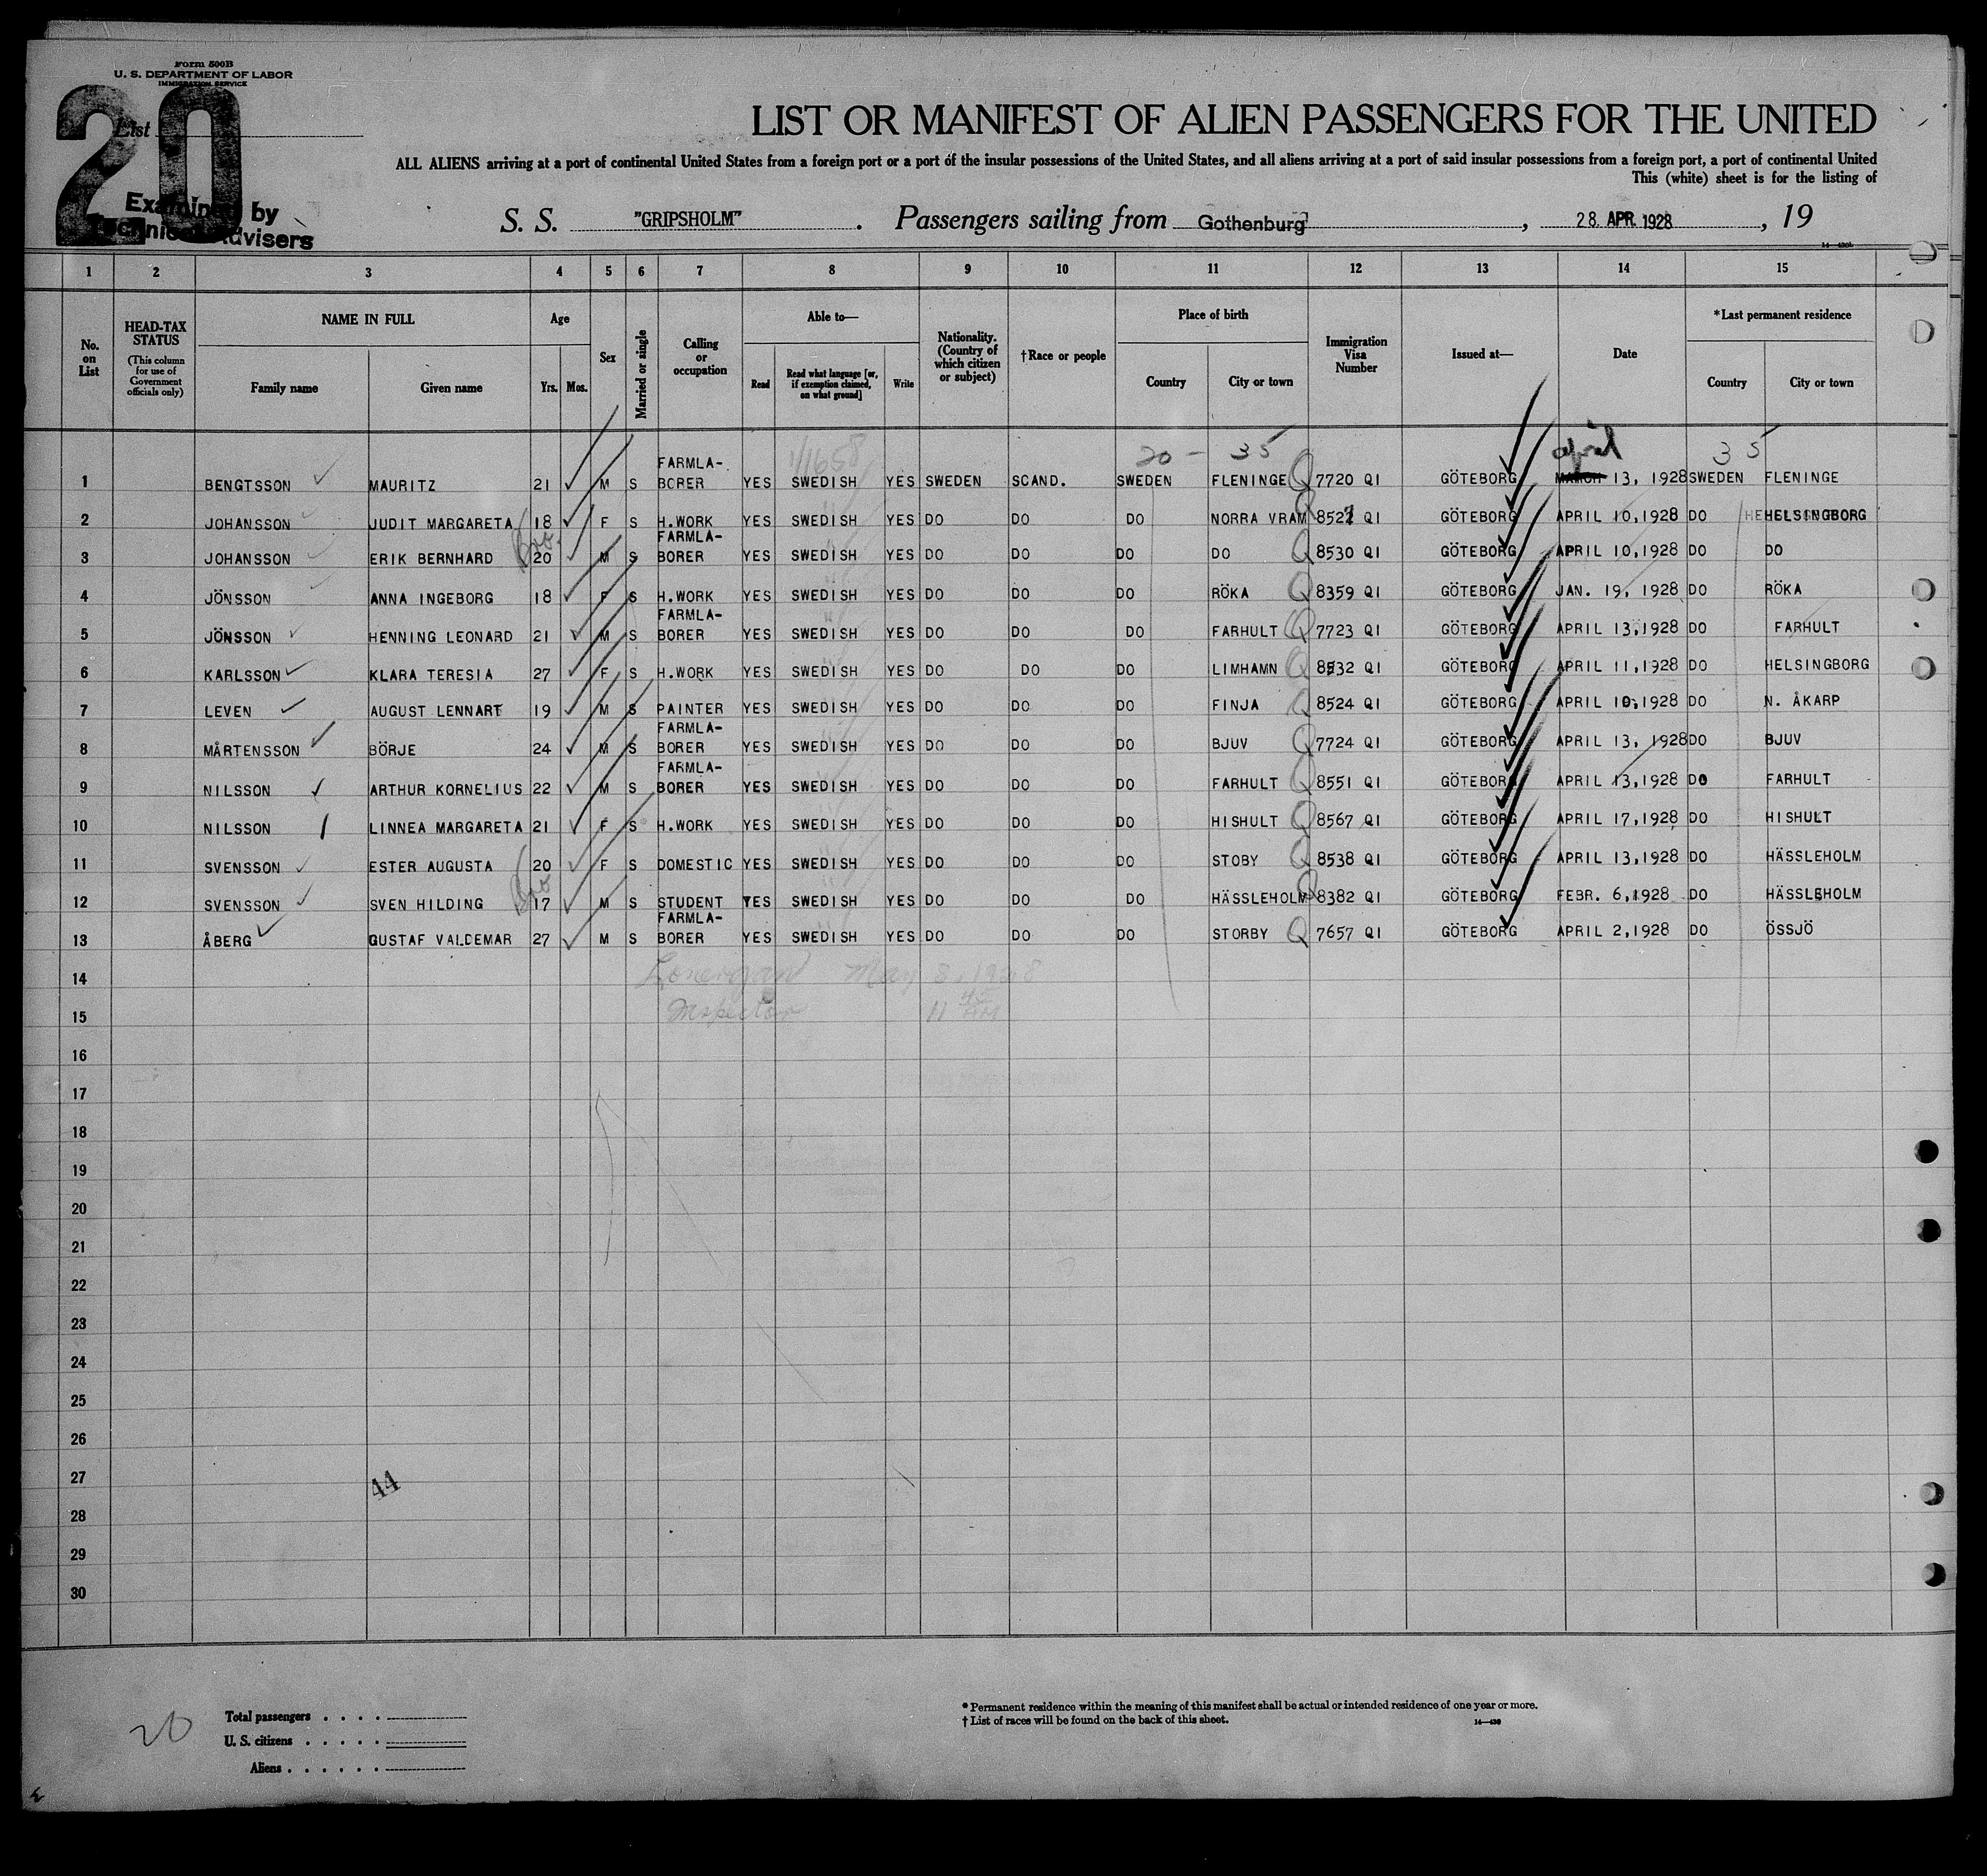 Form 500B
U. S. DEPARTMENT OF LABOR
IMMIGRATION SERVICE
20
List
Examined by
Technical Advisers
LIST OR MANIFEST OF ALIEN PASSENGERS FOR THE UNITED
ALL ALIENS arriving at a port of continental United States from a foreign port or a port of the insular possessions of the United States, and all aliens arriving at a port of said insular possessions from a foreign port, a port of continental United
This (white) sheet is for the listing of
S. S. "GRIPSHOLM" . Passengers sailing from Gothenburg , 28. APR. 1928 , 19
1 2 3 4 5 6 7 8 9 10 11 12 13 14 15
No. on List
HEAD-TAX STATUS (This column for use of Government officials only)
NAME IN FULL
Family name Given name
Age
Yrs. Mos.
Sex
Married or single
Calling or occupation
Able to—
Read Read what language [or, if exemption claimed, on what ground] Write
Nationality. (Country of which citizen or subject)
†Race or people
Place of birth
Country City or town
Immigration Visa Number
Issued at—
Date
*Last permanent residence
Country City or town
20 - 35 april 35
1 BENGTSSON MAURITZ 21 M S FARMLA-BORER YES SWEDISH YES SWEDEN SCAND. SWEDEN FLENINGE Q 7720 QI GÖTEBORG MARCH 13, 1928 SWEDEN FLENINGE
2 JOHANSSON JUDIT MARGARETA 18 F S H.WORK YES SWEDISH YES DO DO DO NORRA VRAM Q 8527 QI GÖTEBORG APRIL 10,1928 DO HELSINGBORG
Bro.
3 JOHANSSON ERIK BERNHARD 20 M S FARMLA-BORER YES SWEDISH YES DO DO DO DO Q 8530 QI GÖTEBORG APRIL 10,1928 DO DO
4 JÖNSSON ANNA INGEBORG 18 F S H.WORK YES SWEDISH YES DO DO DO RÖKA Q 8359 QI GÖTEBORG JAN. 19, 1928 DO RÖKA
5 JÖNSSON HENNING LEONARD 21 M S FARMLA-BORER YES SWEDISH YES DO DO DO FARHULT Q 7723 QI GÖTEBORG APRIL 13,1928 DO FARHULT
6 KARLSSON KLARA TERESIA 27 F S H.WORK YES SWEDISH YES DO DO DO LIMHAMN Q 8532 QI GÖTEBORG APRIL 11,1928 DO HELSINGBORG
7 LEVEN AUGUST LENNART 19 M S PAINTER YES SWEDISH YES DO DO DO FINJA Q 8524 QI GÖTEBORG APRIL 10,1928 DO N. ÅKARP
8 MÅRTENSSON BÖRJE 24 M S FARMLA-BORER YES SWEDISH YES DO DO DO BJUV Q 7724 QI GÖTEBORG APRIL 13, 1928 DO BJUV
9 NILSSON ARTHUR KORNELIUS 22 M S FARMLA-BORER YES SWEDISH YES DO DO DO FARHULT Q 8551 QI GÖTEBORG APRIL 13,1928 DO FARHULT
10 NILSSON LINNEA MARGARETA 21 F S H.WORK YES SWEDISH YES DO DO DO HISHULT Q 8567 QI GÖTEBORG APRIL 17,1928 DO HISHULT
11 SVENSSON ESTER AUGUSTA 20 F S DOMESTIC YES SWEDISH YES DO DO DO STOBY Q 8538 QI GÖTEBORG APRIL 13,1928 DO HÄSSLEHOLM
Bro
12 SVENSSON SVEN HILDING 17 M S STUDENT YES SWEDISH YES DO DO DO HÄSSLEHOLM Q 8382 QI GÖTEBORG FEBR. 6,1928 DO HÄSSLEHOLM
13 ÅBERG GUSTAF VALDEMAR 27 M S FARMLA-BORER YES SWEDISH YES DO DO DO STORBY Q 7657 QI GÖTEBORG APRIL 2,1928 DO ÖSSJÖ
14 Lonergan May 8, 1928
15 Inspector 11 45 AM
16
17
18
19
20
21
22
23
24
25
26
27
44
28
29
30
20
Total passengers . . . .
U. S. citizens . . . . .
Aliens . . . . . .
* Permanent residence within the meaning of this manifest shall be actual or intended residence of one year or more.
† List of races will be found on the back of this sheet.
14—430